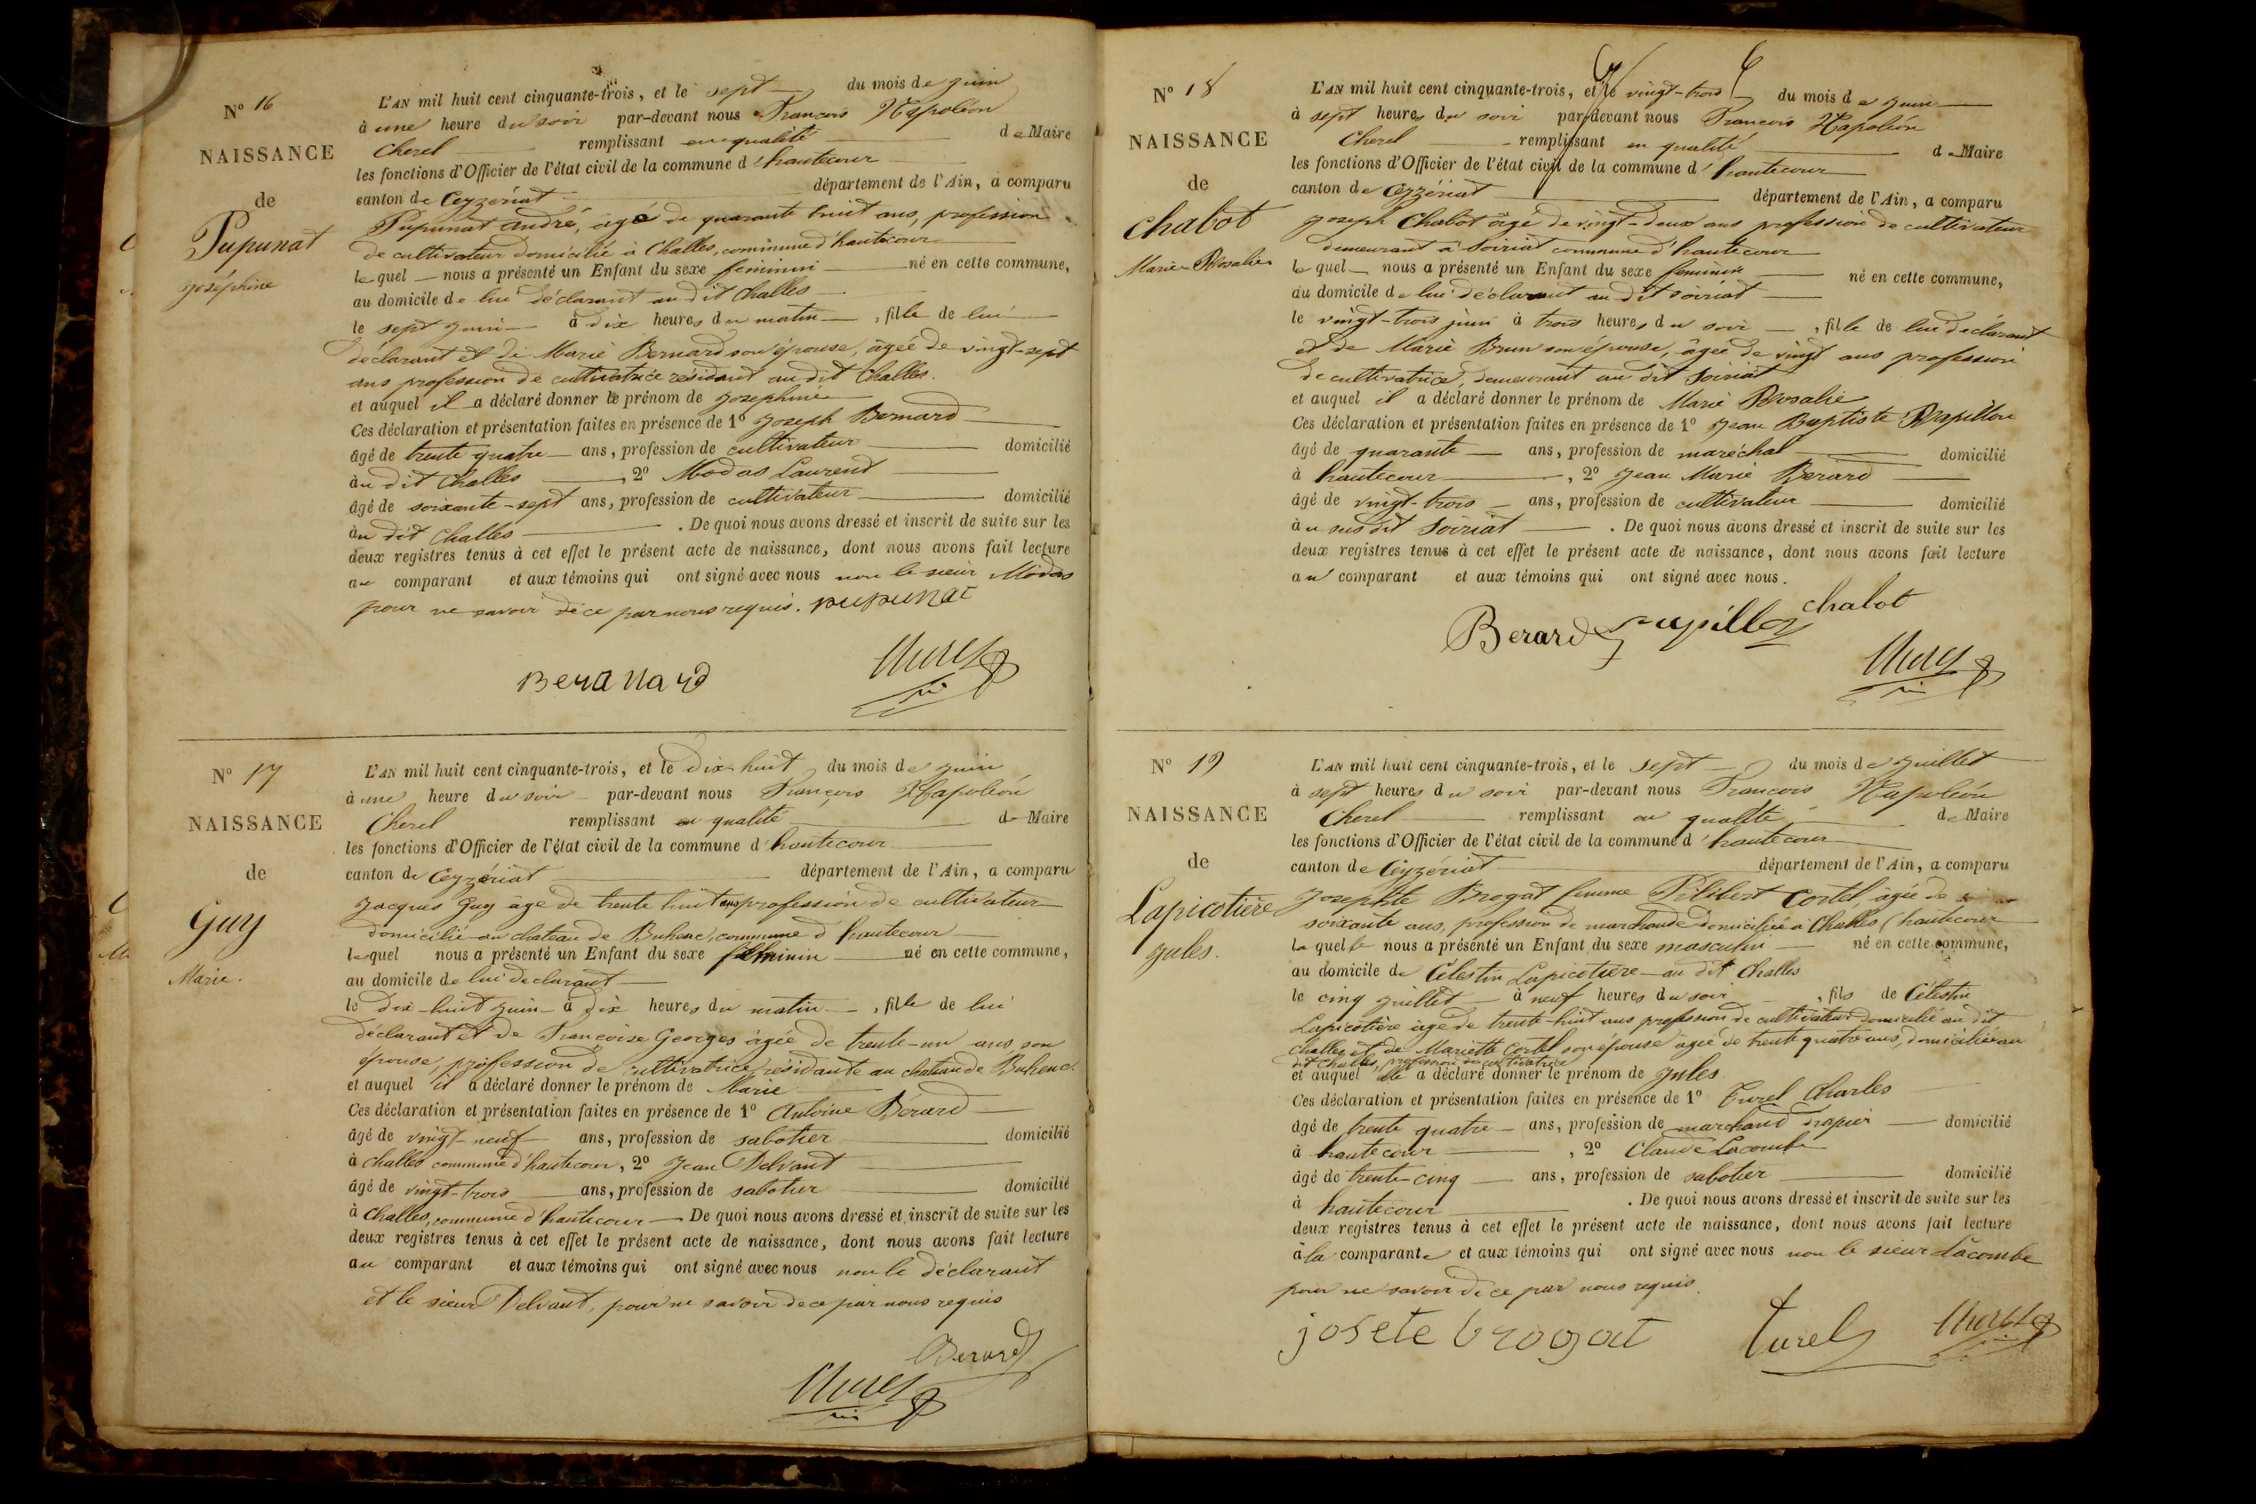 N° 16
NAISSANCE
de
Pupunat
Joséphine
L'AN mil huit cent cinquante-trois, et le sept du mois de juin
à une heure du soir par-devant nous François Napoléon
Cherel remplissant en qualité de Maire
les fonctions d'Officier de l'état civil de la commune d'hautecour
canton de Ceyzériat département de l'Ain, a comparu
Pupunat André, âgé de quarante huit ans, profession
de cultivateur domicilié à Challes, commune d'hautecour
lequel nous a présenté un Enfant du sexe féminin né en cette commune,
au domicile de lui déclarant au dit Challes
le sept juin à dix heures du matin, fille de lui
déclarant et de Marie Bernard son épouse, âgée de vingt-sept
ans profession de cultivatrice résidant au dit Challes.
et auquel il a déclaré donner le prénom de Joséphine
Ces déclaration et présentation faites en présence de 1° Joseph Bernard
âgé de trente quatre ans, profession de cultivateur domicilié
au dit Challes, 2° Modas Laurend
âgé de soixante-sept ans, profession de cultivateur domicilié
au dit Challes. De quoi nous avons dressé et inscrit de suite sur les
deux registres tenus à cet effet le présent acte de naissance, dont nous avons fait lecture
au comparant et aux témoins qui ont signé avec nous non le sieur Modas
pour ne savoir de ce par nous requis. pupunat
Beranard Cherel
N° 17
NAISSANCE
de
Guy
Marie.
L'AN mil huit cent cinquante-trois, et le dix-huit du mois de juin
à une heure du soir par-devant nous François Napoléon
Cherel remplissant en qualité de Maire
les fonctions d'Officier de l'état civil de la commune d'hautecour
canton de Ceyzériat département de l'Ain, a comparu
Jacques Guy âgé de trente huit ans profession de cultivateur
domicilié au chateau de Buhenc, commune d'hautecour
lequel nous a présenté un Enfant du sexe féminin né en cette commune,
au domicile de lui déclarant
le dix-huit juin à dix heures du matin, fille de lui
déclarant et de Françoise Georges âgée de trente-un ans, son
épouse, profession de cultivatrice, résidante au chateau de Buhenc.
et auquel il a déclaré donner le prénom de Marie
Ces déclaration et présentation faites en présence de 1° Antoine Bérard
âgé de vingt-neuf ans, profession de sabotier domicilié
à Challes commune d'hautecour, 2° Jean Delvant
âgé de vingt-trois ans, profession de sabotier domicilié
à Challes, commune d'hautecour De quoi nous avons dressé et inscrit de suite sur les
deux registres tenus à cet effet le présent acte de naissance, dont nous avons fait lecture
au comparant et aux témoins qui ont signé avec nous non le déclarant
et le sieur Delvant, pour ne savoir de ce par nous requis
Berard
Cherel
N° 18
NAISSANCE
de
Chabot
Marie-Rosalie
L'AN mil huit cent cinquante-trois, et le vingt-trois du mois de juin
à sept heures du soir par-devant nous François Napoléon
Cherel remplissant en qualité de Maire
les fonctions d'Officier de l'état civil de la commune d'hautecour
canton de Ceyzériat département de l'Ain, a comparu
Joseph Chabot âgé de vingt-deux ans profession de cultivateur
demeurant à Soiriat commune d'hautecour
lequel nous a présenté un Enfant du sexe féminin né en cette commune,
au domicile de lui déclarant au dit Soiriat
le vingt-trois juin à trois heures du soir, fille de lui déclarant
et de Marie Brun son épouse, âgée de vingt ans profession
de cultivatrice, demeurant au dit Soiriat
et auquel il a déclaré donner le prénom de Marie Rosalie
Ces déclaration et présentation faites en présence de 1° Jean Baptiste Papillon
âgé de quarante ans, profession de maréchal domicilié
à hautecour, 2° Jean Marie Berard
âgé de vingt-trois ans, profession de cultivateur domicilié
au susdit Soiriat. De quoi nous avons dressé et inscrit de suite sur les
deux registres tenus à cet effet le présent acte de naissance, dont nous avons fait lecture
au comparant et aux témoins qui ont signé avec nous.
Berard papillon chabot
Cherel
N° 19
NAISSANCE
de
Lapicotière
Jules.
L'AN mil huit cent cinquante-trois, et le sept du mois de juillet
à sept heures du soir par-devant nous François Napoléon
Cherel remplissant en qualité de Maire
les fonctions d'Officier de l'état civil de la commune d'hautecour
canton de Ceyzériat département de l'Ain, a comparu
Josephte Brogat femme Philibert Cortel, âgée de
soixante ans, profession de marchande domiciliée à Challes (hautecour
laquelle nous a présenté un Enfant du sexe masculin né en cette commune,
au domicile de Célestin Lapicotière au dit Challes
le cinq juillet à neuf heures du soir, fils de Célestin
Lapicotière âgé de trente-huit ans profession de cultivateur domicilié au dit
Challes et de Mariette Cortel son épouse âgée de trente quatre ans, domiciliée au
dit Challes, profession de cultivatrice
et auquel elle a déclaré donner le prénom de Jules
Ces déclaration et présentation faites en présence de 1° Turel Charles
âgé de trente quatre ans, profession de marchand drapier domicilié
à hautecour, 2° Claude Lacombe
âgé de trente-cinq ans, profession de sabotier domicilié
à hautecour. De quoi nous avons dressé et inscrit de suite sur les
deux registres tenus à cet effet le présent acte de naissance, dont nous avons fait lecture
à la comparante et aux témoins qui ont signé avec nous non le sieur Lacombe
pour ne savoir de ce par nous requis.
josete brogat turel Cherel